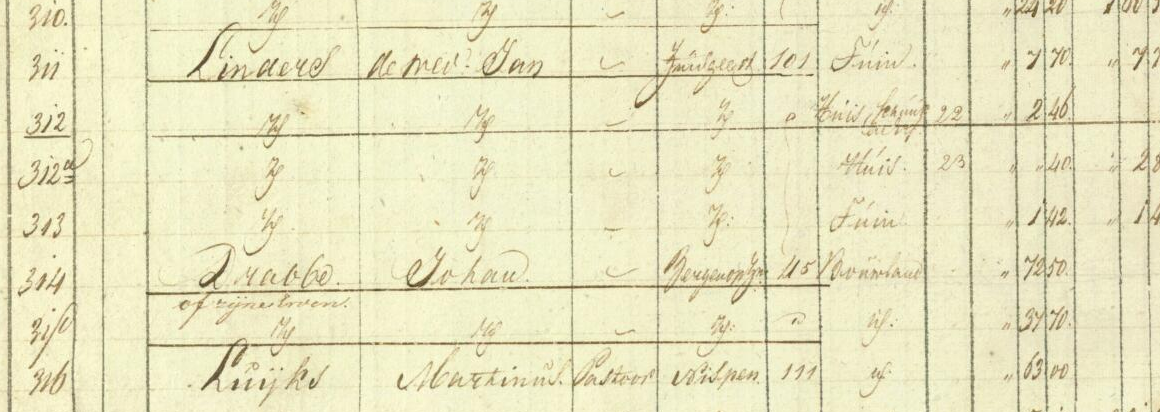 310. Id Id - Id: id: " 24 20
311 Linders de wed: Jan - 101 Tuin. " 7 70. "
312 Id Id - Id " Huis schuur 22 " 2 46.
erf
312a Id Id - Id Huis. 23 " " 40. "
313 Id Id - Id: Tuin " 1 42. " 1
314 Drabbe. Johan. - Bergenopzm 115 Bouwland " 72 50.
of zijne Erven.
315 Id Id - Id: " id. " 37 70.
316 Luijks Martinus. Pastoor Nispen 111 id " 63 00